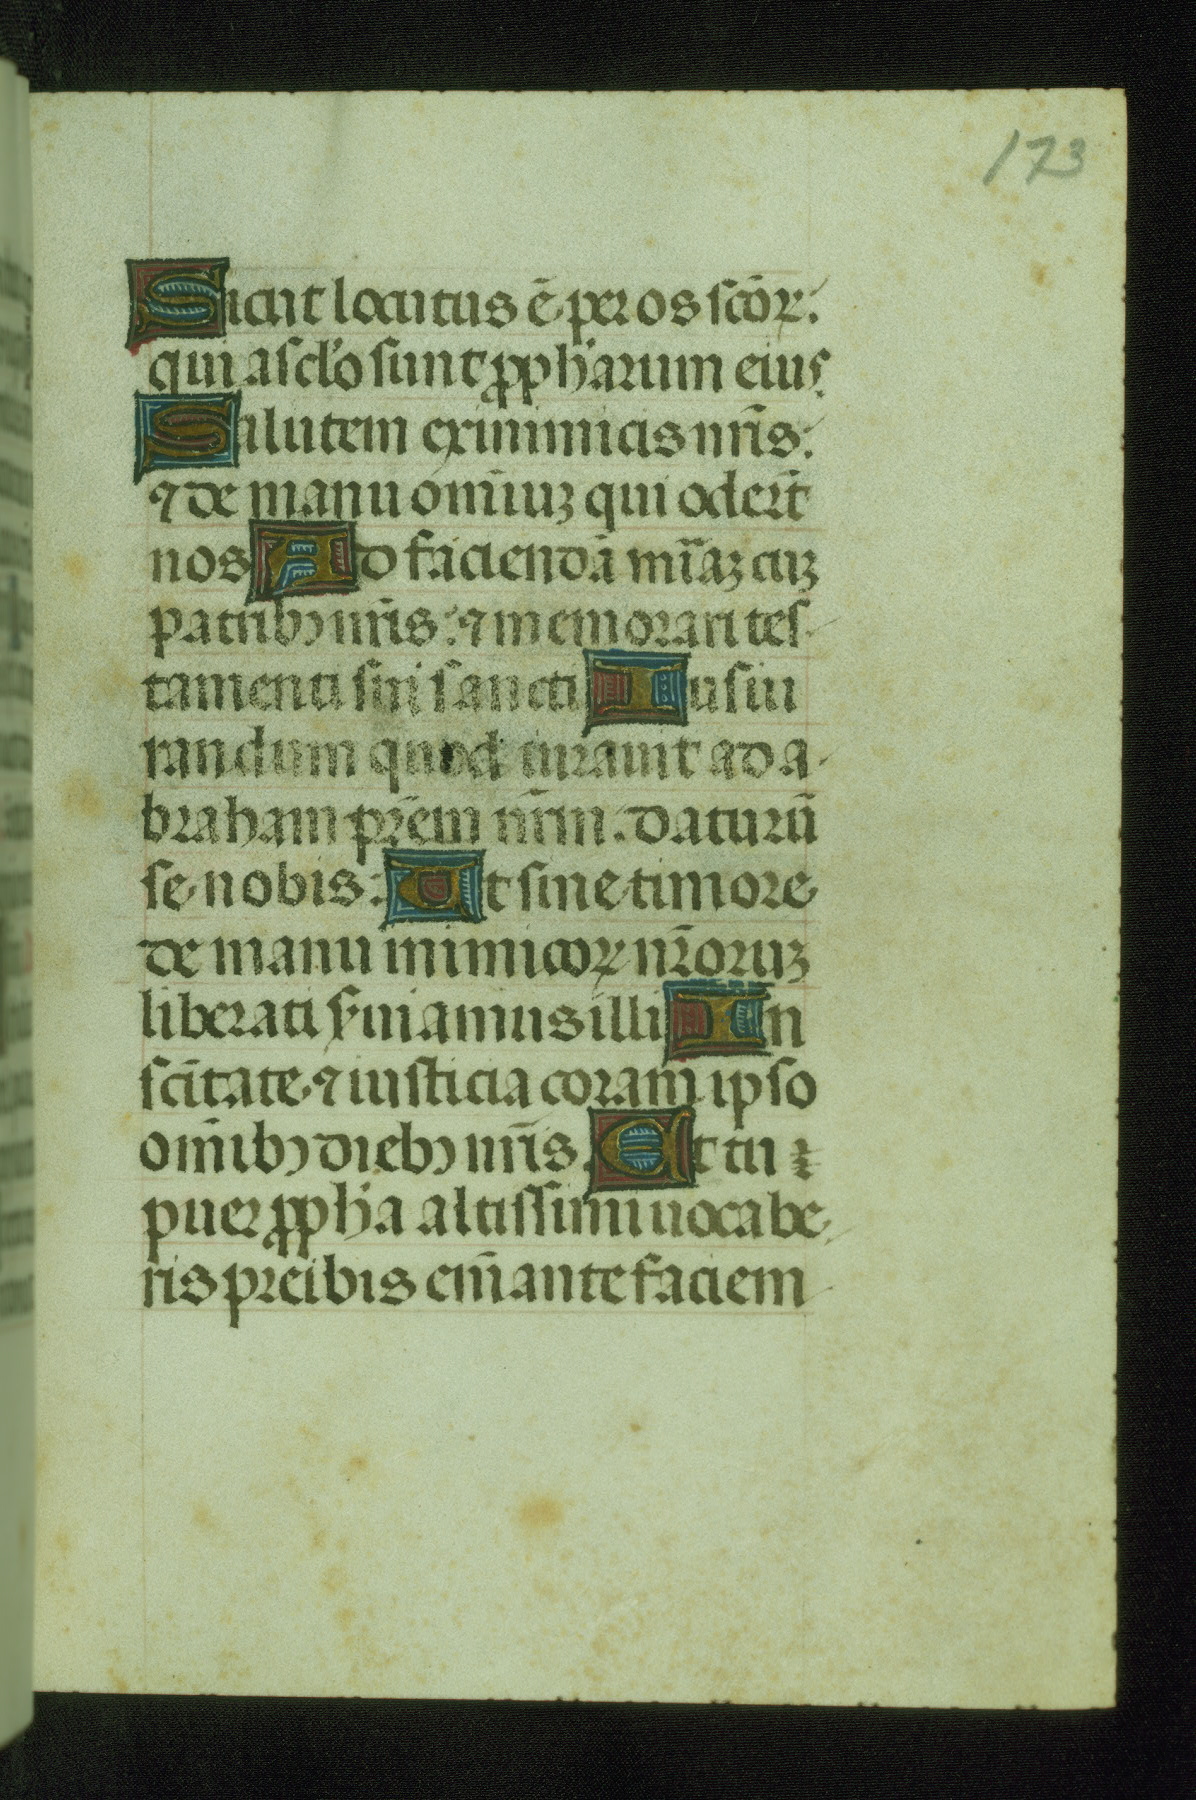 173
Sicut locutus ē per os scōꝝ:
qui a sc̄lo sunt ꝓph'arum eius
Salutem ex inimicis nr̄is:
⁊ de manu om̄iuꝫ qui oder̄t
nos Ad faciendā mīaꝫ cuꝫ
patribꝯ nr̄is: ⁊ memorari tes-
tamenti sui sancti Iusiu
randum quod iurauit ad a-
braham pr̄em nr̄m. daturū
se nobis: Ut sine timore
de manu inimicoꝝ nr̄oruꝫ
liberati s'uiamus illi In
scītate ⁊ iusticia coram ipso
om̄ibꝯ diebꝯ nr̄is. Et tu
puer ꝓph'a altissimi uocabe-
ris preibis em̄ ante faciem